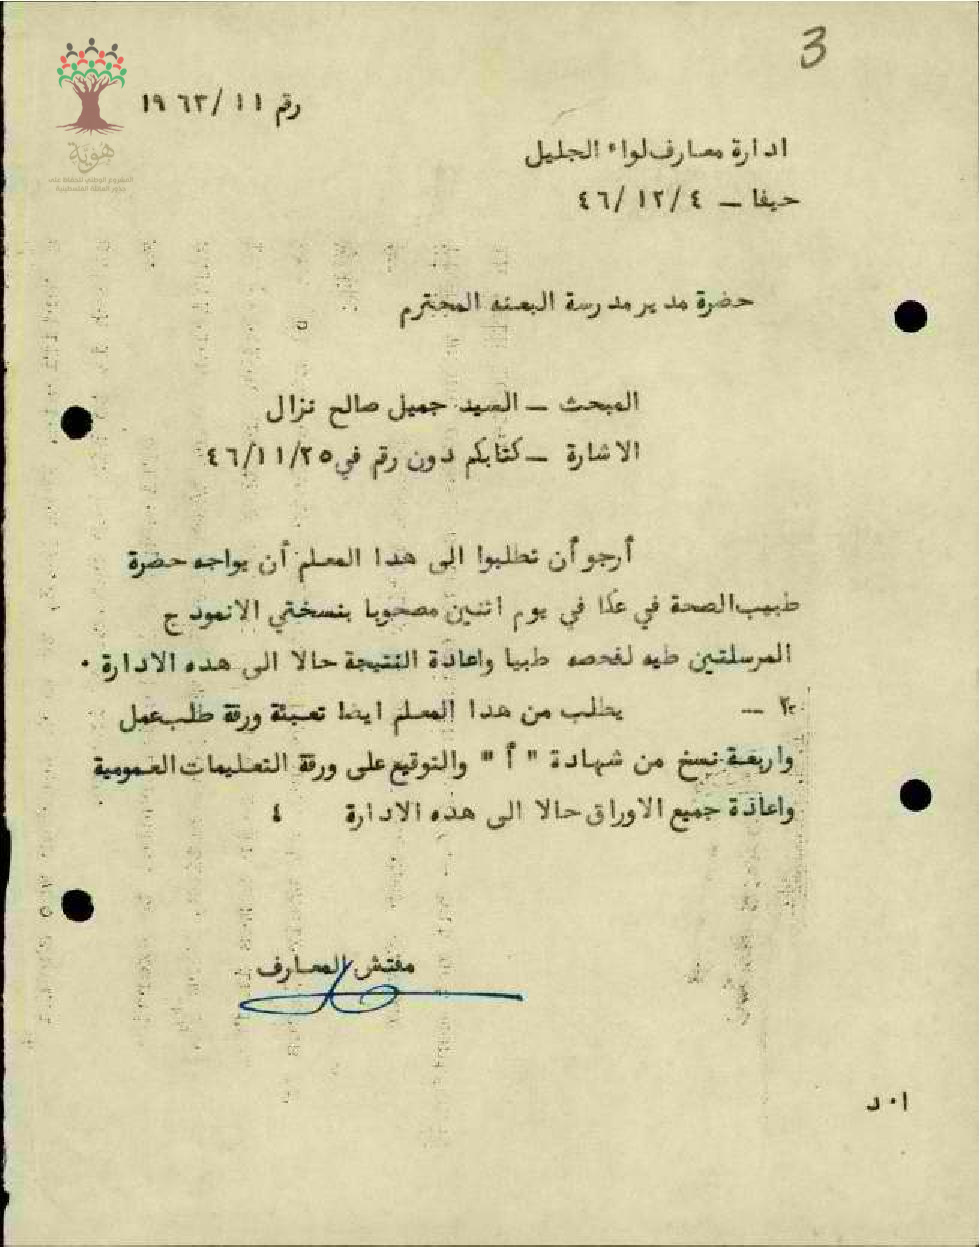 3
رقم ١١/ ١٩٦٣
هوية
المشروع الوطني للحفاظ على
جذور العائلة الفلسطينية
ادارة معارف لواء الجليل
حيفا – ٤/ ١٢/ ٤٦
حضرة مدير مدرسة البعنه المحترم
المبحث – السيد جميل صالح نزال
الاشارة – كتابكم دون رقم في ٢٥/١١/٤٦
أرجو أن تطلبوا الى هذا المعلم أن يواجه حضرة
طبيب الصحة في عكا في يوم اثنين مصحوبا بنسختي الانموذج
المرسلتين طيه لفحصه طبيا واعادة النتيجة حالا الى هذه الادارة ٠
٢ – يطلب من هذا المعلم ايضا تعبئة ورقة طلب عمل
واربعة نسخ من شهادة " أ " والتوقيع على ورقة التعليمات العمومية
واعادة جميع الاوراق حالا الى هذه الادارة ٤
مفتش المعارف
ا٠ د